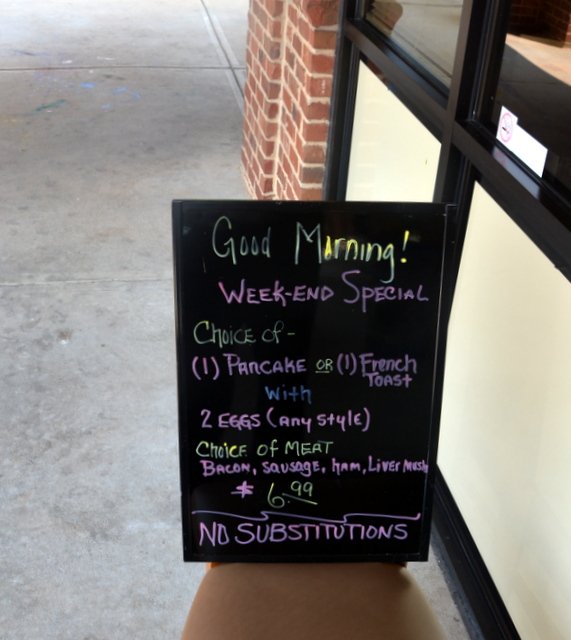 Good Morning!
WEEK-END SPECIAL
CHOICE OF -
(1) PANCAKE OR (1) FRENCH TOAST
with
2 EGGS (any style)
CHOICE OF MEAT
BACON, SAUSAGE, HAM, LIVER MUSH
$ 6.99
NO SUBSTITUTIONS